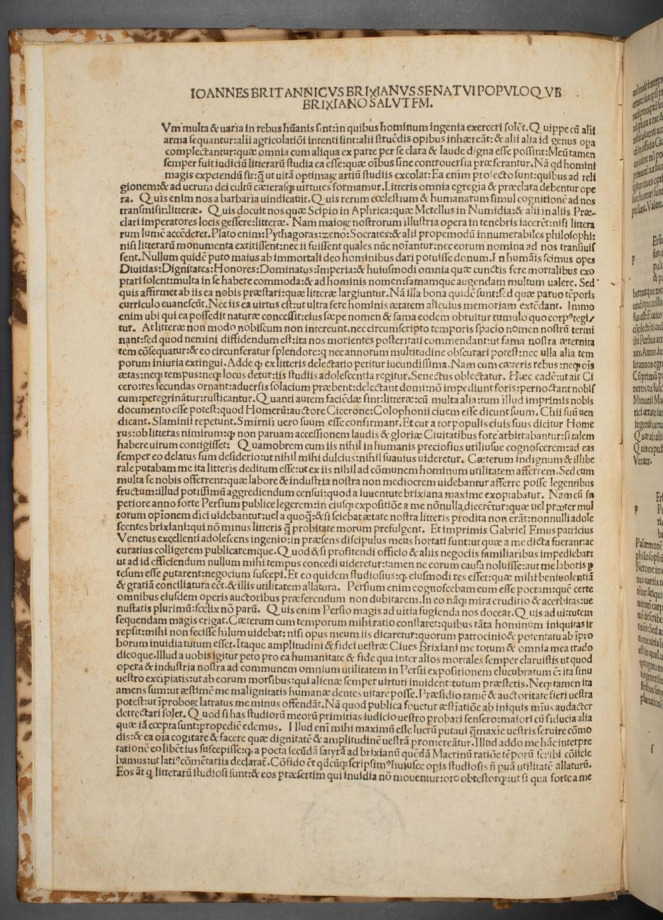 IOANNES BRITANNICVS BRIXIANVS SENATVI POPVLOQ VE
BRIXIANO SALVTEM.
Vm multa & uaria in rebus hūanis sint: in quibus hominum ingenia exerceri solēt. Quippe cū alii
arma sequantur: alii agricolatiōi intenti sint: alii struēdis opibus inhæreāt: & alii alia id genus opa
complectantur: quæ omnia cum aliqua ex parte per se clara & laude digna esse possint: Meū tamen
semper fuit iudiciū litterarū studia ea esse: quæ oībus sine controuersia præferantur. Nā qd homini
magis expetendū sit: q̄ ut uitā optimaꝝ artiū studiis excolat: Ea enim profecto sunt: quibus ad reli
gionem: & ad uerum dei cultū cæterasq; uirtutes formamur. Litteris omnia egregia & præclara debentur ope
ra. Quis enim nos a barbaria uindicauit. Quis rerum cœlestium & humanarum simul cognitionē ad nos
transmisit: litteræ. Quis docuit nos quæ Scipio in Aphrica: quæ Metellus in Numidia: & alii in aliis Præ-
clari imperatores locis gessere: litteræ. Nam maioꝝ nostrorum illustria opera in tenebris iacerēt: nisi littera
rum lumē accēderet. Plato enim: Pythagoras: zeno: Socrates: & alii propemodū innumerabiles philosophi:
nisi litterarū monumenta extitissent: nec ii fuissent quales nūc noīantur: nec eorum nomina ad nos transiuis
sent. Nullum quidē puto maius ab immortali deo hominibus dari potuisse donum. In hūanis scimus opes
Diuitias: Dignitates: Honores: Dominatus: Imperia: & huiusmodi omnia quæ cunctis fere mortalibus exo
ptari solent: multa in se habere commoda: & ad hominis nomen: famamque augendam multum ualere. Sed
quis affirmet ab iis ea nobis præstari: quæ litteræ largiuntur. Nā illa bona quidē sunt: sed quæ paruo tēporis
curriculo euanescūt. Nec iis ea uirtus est: ut ultra fere hominis ætatem alicuius memoriam extēdant. Immo
enim ubi qui ea possedit naturæ concessit: eius sæpe nomen & fama eodem obruitur tumulo quo corpꝰ tegi-
tur. At litteræ non modo nobiscum non intereunt. nec circunscripto temporis spacio nomen nostrū termi
nant: sed quod nemini diffidendum est: ita nos morientes posteritati commendant: ut fama nostra æternita
tem cōsequatur: & eo circunferatur splendore: q nec annorum multitudine obscurari potest: nec ulla alia tem
porum iniuria extingui. Adde q ex litteris delectatio petitur iucundissima. Nam cum cæteris rebus: neq; oīs
ætas: neq; tempus: neq; locus detur: iis studiis adolescentia regitur. Senectus oblectatur. Hæc eædē: ut ait Ci
cero: res secundas ornant: aduersis solacium præbent: delectant domi: nō impediunt foris: pernoctant nobis
cum: peregrinātur: rusticantur. Quanti autem faciēdæ sint: litteræ: cū multa alia: tum illud imprimis nobis
documento esse potest: quod Homerū: auctore Cicerone: Colophonii ciuem esse dicunt suum. Chii suū uen
dicant. Slaminii repetunt. Smirni uero suum esse confirmant. Et cur a tot populis ciuis suus dicitur Home
rus: ob litteras: nimirum: q non paruam accessionem laudis & gloriæ Ciuitatibus fore arbitrabantur: si talem
habere uirum contigisset. Quamobrem cum iis nihil in humanis preciosius utiliusue cognoscerem: ad eas
semper eo delatus sum desiderio: ut nihil mihi dulcius: nihil suauius uideretur. Cæterum indignum & illibe
rale putabam me ita litteris deditum esse: ut ex iis nihil ad cōmunem hominum utilitatem afferrem. Sed cum
multa se nobis offerrent: quæ labore & industria nostra non mediocrem uidebantur afferre posse legentibus
fructum: illud potissimū aggrediendum censui: quod a iuuentute brixiana maxime exoptabatur. Nam cū su
periore anno forte Persium publice legerem: in eiusq; expositiōe a me nōnulla dicerētur: quæ uel præter mul
torum opiōnem dici uidebantur: uel a quoq;: & si sciebat ætate nostra litteris prodita non erāt: nonnulli adole
scentes brixiani: qui nō minus litteris q̄ probitate morum præfulgent. Et imprimis Gabriel Emus patricius
Venetus excellenti adolescens ingenio: in præsens discipulus meus hortati sunt: ut quæ a me dicta fuerant: ac
curatius colligerem publicaremque. Quod & si profitendi officio & aliis negociis familiaribus impediebar:
ut ad id efficiendum nullum mihi tempus concedi uideretur: tamen ne eorum causa noluisse: aut me laboris p
tesum esse putarent: negocium suscepi. Et eo quidem studiosius: q eiusmodi res esset: quæ mihi beniuolentiā
& gratiā conciliatura eēt. & illis utilitatem allatura. Persium enim cognoscebam eum esse poetam: quē certe
omnibus eiusdem operis auctoribus præferendum non dubitarem. In eo nāq; mira eruditio & acerbitas: ue
nustatis plurimū: fœlix nō parū. Quis enim Persio magis ad uitia fugienda nos doceat. Quis ad uirtutem
sequendam magis erigat. Cæterum cum temporum mihi ratio constaret: quibus tāta hominum iniquitas ir
repsit: mihi non fecisse hilum uidebar: nisi opus meum iis dicaretur: quorum patrocinio & potentatu ab īpro
borum inuidia tutum esset. Itaque amplitudini & fidei uestræ Ciues Brixiani me totum & omnia mea trado
dicoque. Illud a uobis igitur peto pro ea humanitate & fide qua inter alios mortales semper claruistis ut quod
opera & industria nostra ad communem omnium utilitatem in Persii expositionem elucubratum ē: ita sinu
uestro excipiatis: ut ab eorum morsibus: qui alienæ semper uirtuti inuident: tutum præstetis. Neq; tamen ita
amens sum: ut æstimē me malignitatis humanæ dentes uitare posse. Præsidio tamē & auctoritate fieri uestra
potest: ut īproboꝝ latratus me minus offendāt. Nā quod publica fouetur æstīatiōe ab iniquis minꝰ audacter
detrectari solet. Quod si has studiorū meorū primitias iudicio uestro probari sensero: maiori cū fiducia alia
quæ iā cœpta sunt: propediē edemus. Illud enī mihi maximū esse lucrū putaui q̄ maxīe uestris seruire cōmo
dis: & ea oīa cogitare & facere quæ dignitatē & amplitudinē uestrā promereātur. Illud addo me hāc interpre
tationē eo libētius suscepisse: q a poeta secūda satyrā ad brixianū quēdā Macrinū ratiōe tēporū scribi cōiicie
bamus: ut latiꝰ cōmētariis declaraī. Cōfido ēt qdcūq; scripsimꝰ huiusce opis studiosis nō puā utilitatē allaturū.
Eos āt q litterarū studiosi sunt: & eos præsertim qui inuidia nō mouentur: oro obtestorq; ut si qua forte a me